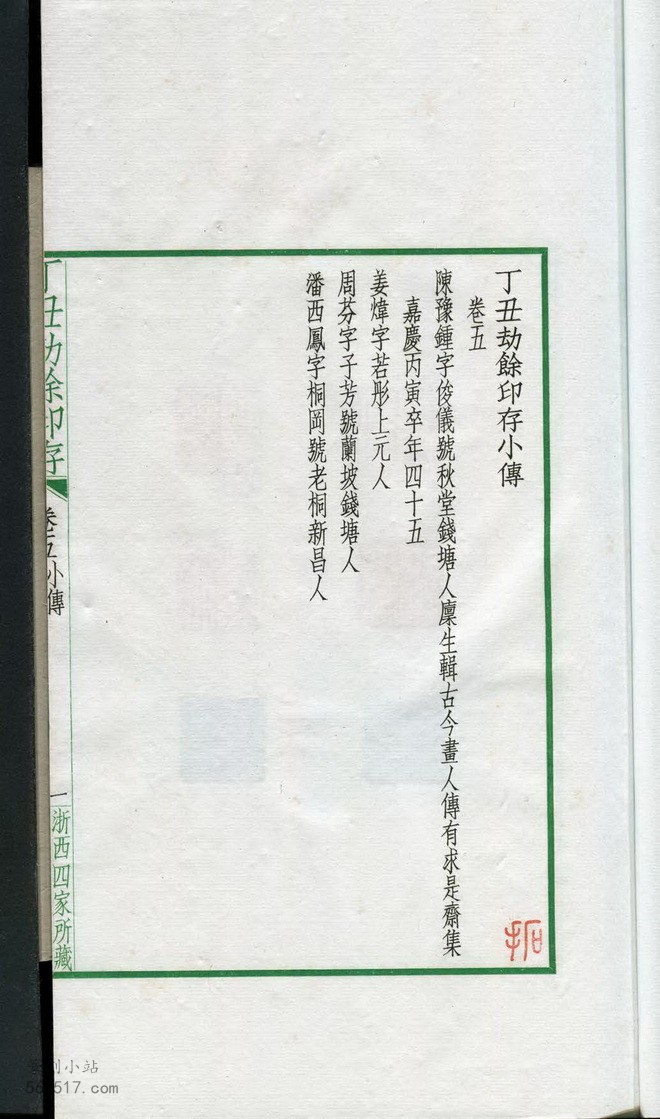 丁丑劫餘印存小傳
卷五
陳豫鍾字俊儀號秋堂錢塘人廩生輯古今畫人傳有求是齋集
嘉慶丙寅卒年四十五
姜煒字若彤上元人
周芬字子芳號蘭坡錢塘人
潘西鳳字桐岡號老桐新昌人
丁丑劫餘印存
卷五小傳
一
浙西四家所藏
小站
517.com